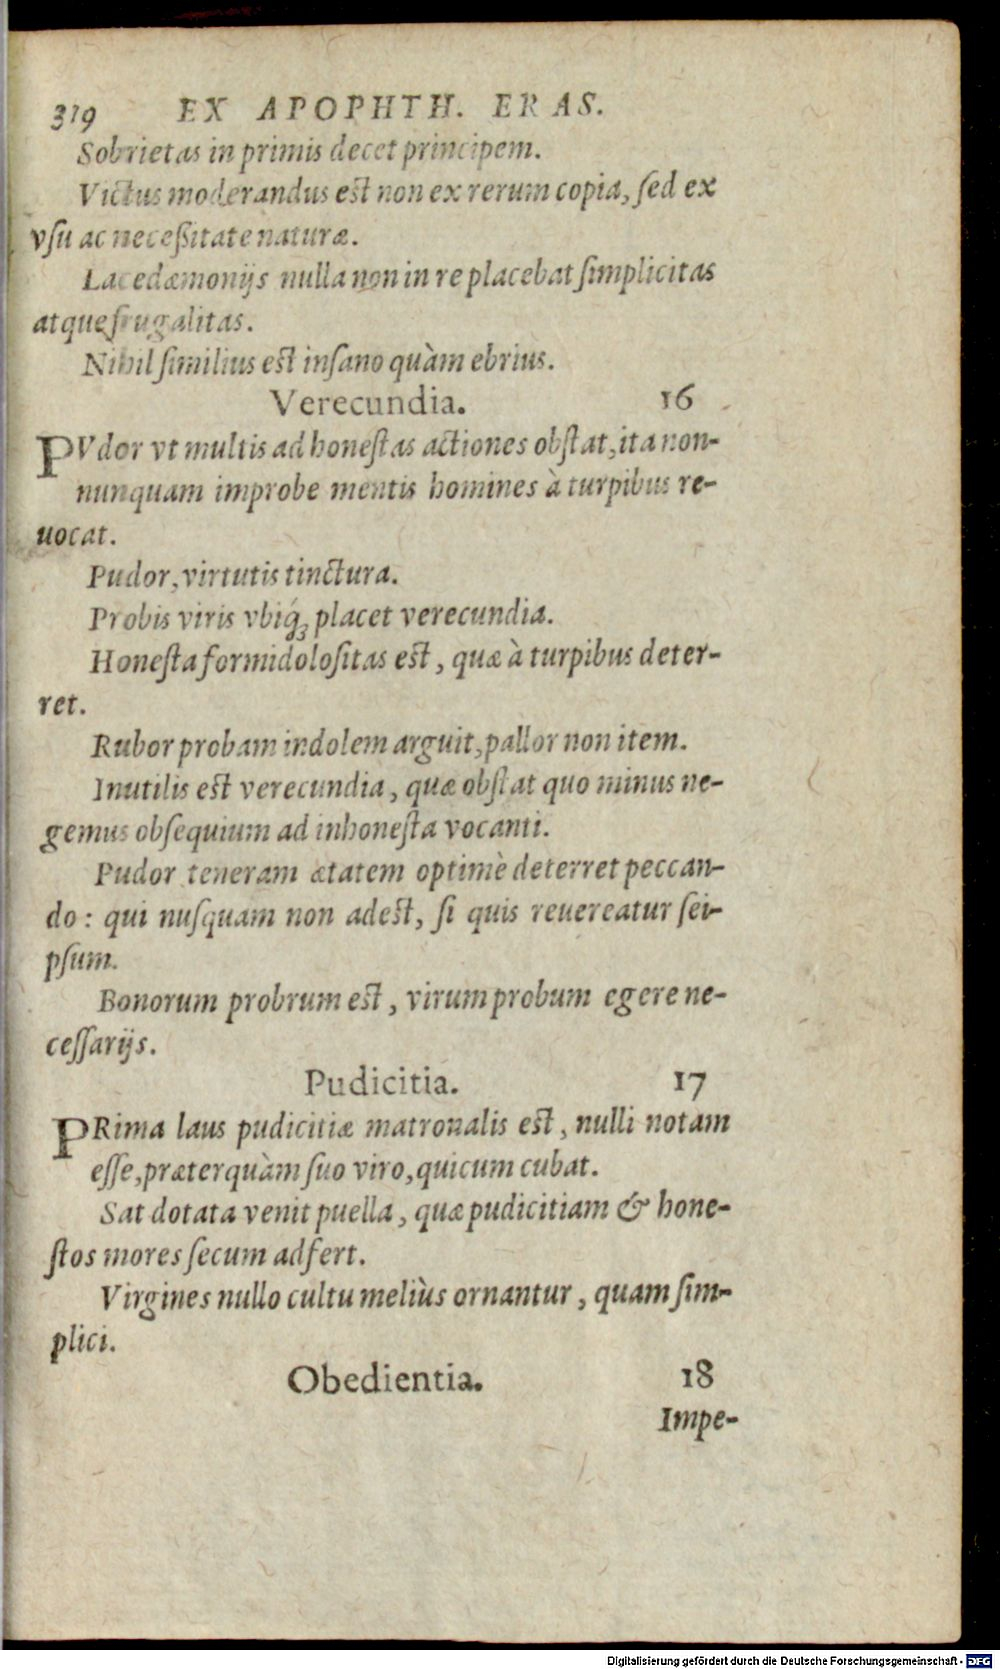 319 EX APOPHTH. ERAS.
Sobrietas in primis decet principem.
Victus moderandus est non ex rerum copia, ſed ex
vſu ac neceſſitate naturæ.
Lacedæmonijs nulla non in re placebat ſimplicitas
atque frugalitas.
Nihil ſimilius est inſano quàm ebrius.
Verecundia. 16
PVdor vt multis ad honeſtas actiones obſtat, ita non-
nunquam improbe mentis homines à turpibus re-
uocat.
Pudor, virtutis tinctura.
Probis viris vbiq́; placet verecundia.
Honeſta formidoloſitas est, quæ à turpibus deter-
ret.
Rubor probam indolem arguit, pallor non item.
Inutilis est verecundia, quæ obſtat quo minus ne-
gemus obſequium ad inhoneſta vocanti.
Pudor teneram ætatem optimè deterret peccan-
do: qui nuſquam non adest, ſi quis reuereatur ſei-
pſum.
Bonorum probrum est, virum probum egere ne-
ceſſarijs.
Pudicitia. 17
PRima laus pudicitiæ matronalis est, nulli notam
eſſe, præterquàm ſuo viro, quicum cubat.
Sat dotata venit puella, quæ pudicitiam & hone-
ſtos mores ſecum adfert.
Virgines nullo cultu meliùs ornantur, quam ſim-
plici.
Obedientia. 18
Impe-
Digitalisierung gefördert durch die Deutsche Forschungsgemeinschaft - DFG